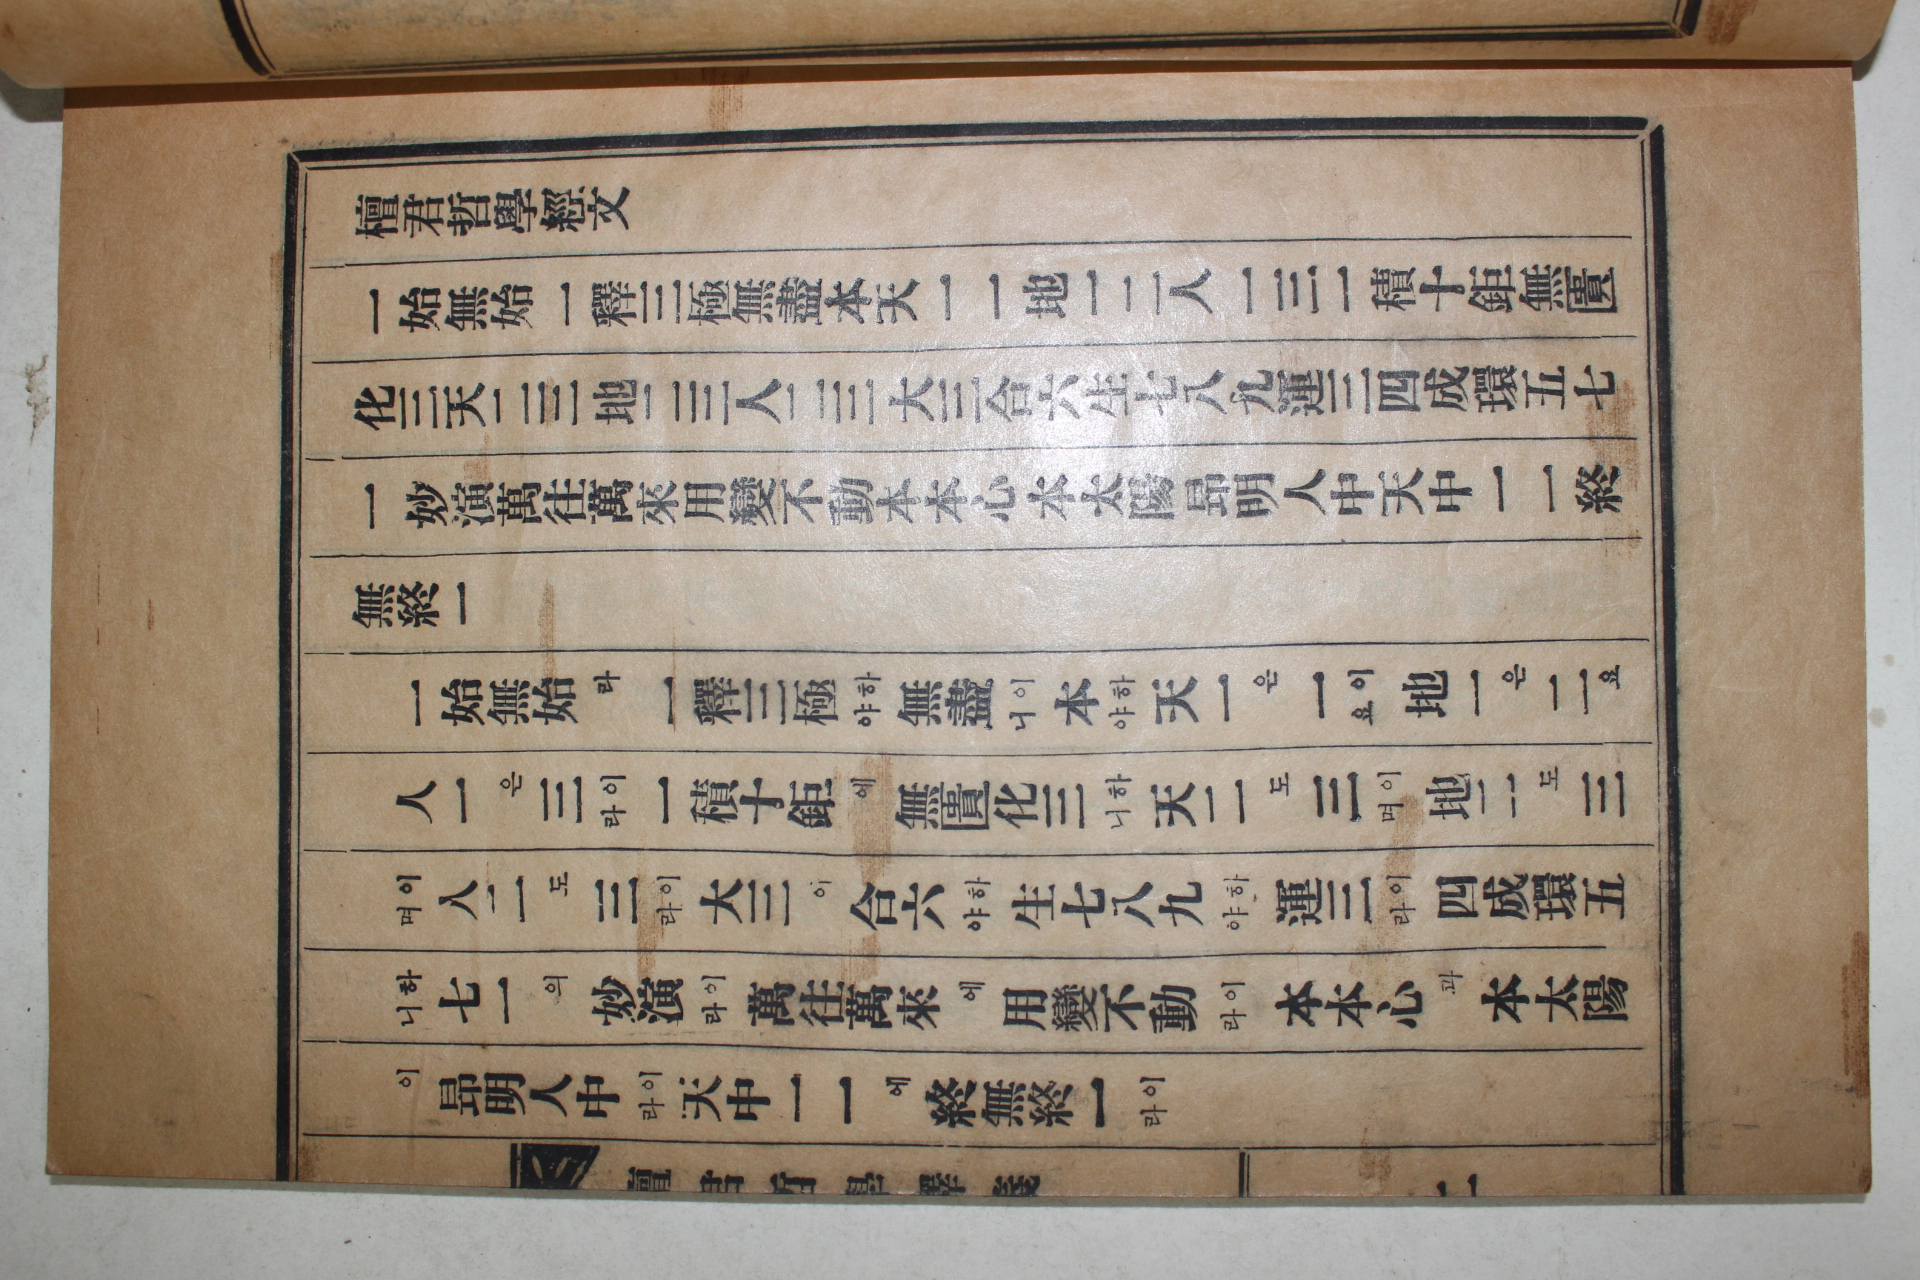 檀君哲學經文
一始無始一釋三極無盡本天一一地一二人一三一積十鉅無匱
化三天二三地二三人二三大三合六生七八九運三四成環五七
一妙演萬往萬來用變不動本本心本太陽昻明人中天中一一終
無終一
一始無始라一釋三極하야無盡이니本하야天一은一이요地一은二요
人一은三이라一積十鉅에無匱化三하니天二도三이며地二도三
이며八二도三이라大三이合六하야生七八九하야運三이라四成環五
하니七一의妙演이라萬往萬來에用變不動이라本本心과本太陽
이昻明人中이라天中一一에終無終一이라
檀君哲學釋義